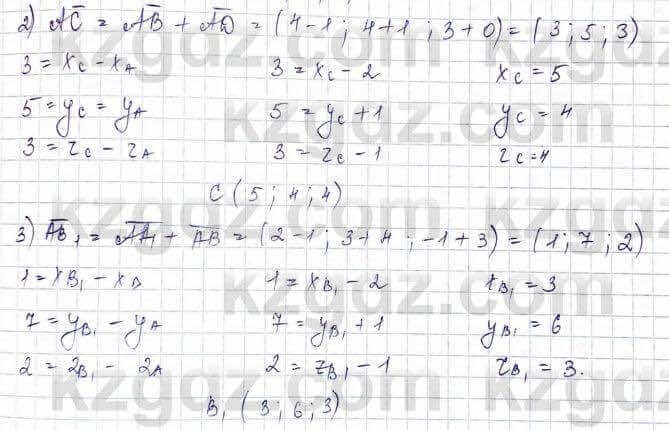 2) A̅C̅ = A̅B̅ + A̅D̅ = (4-1 ; 4+1 ; 3+0) = (3 ; 5 ; 3)
3 = x_C - x_A 3 = x_C - 2 x_C = 5
5 = y_C = y_A 5 = y_C + 1 y_C = 4
3 = z_C - z_A 3 = z_C - 1 z_C = 4
C (5 ; 4 ; 4)
3) A̅B̅₁ = A̅A̅₁ + A̅B̅ = (2-1 ; 3+4 ; -1+3) = (1 ; 7 ; 2)
1 = x_B₁ - x_A 1 = x_B₁ - 2 x_B₁ = 3
7 = y_B₁ - y_A 7 = y_B₁ + 1 y_B₁ = 6
2 = z_B₁ - z_A 2 = z_B₁ - 1 z_B₁ = 3.
B₁ (3 ; 6 ; 3)
kzgdz.com